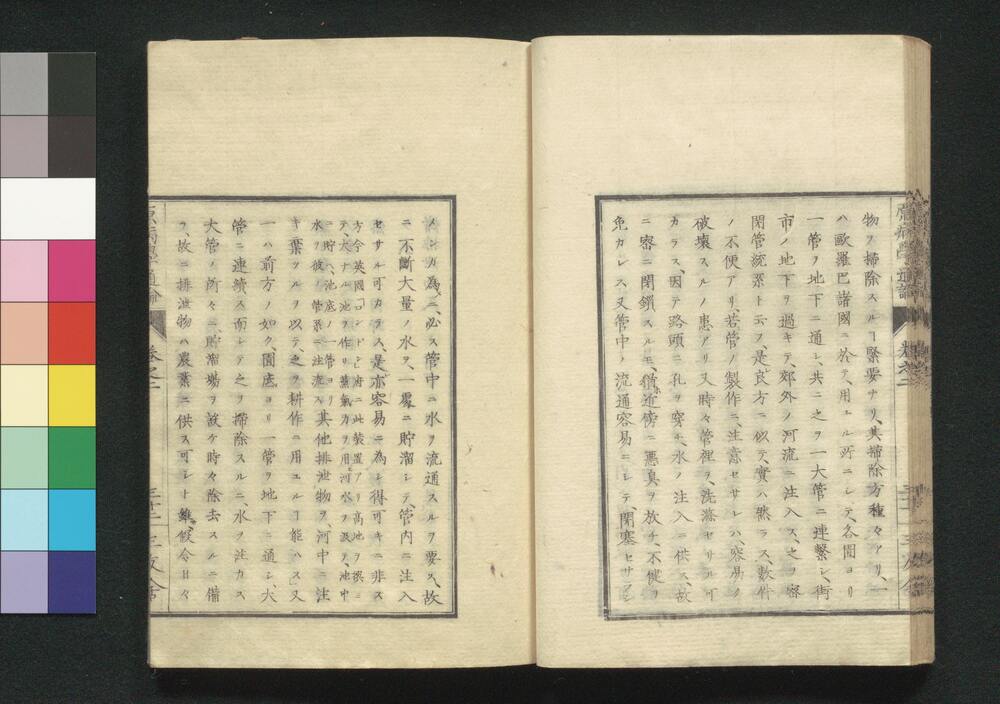 物ヲ掃除スルヿ緊要ナリ、其掃除方種々アリ、一
ハ歐羅巴諸國ニ於テ、用エル所ニシテ、各圊ヨリ
一管ヲ地下ニ通シ、共ニ之ヲ一大管ニ連繫シ、街
市ノ地下ヲ過キテ、郊外ノ河流ニ注入ス、之ヲ密
閉管流系ト云フ、是良方ニ似テ、實ハ然ラス、數件
ノ不便アリ、若管ノ製作ニ、注意セサレハ、容易ノ
破壞スルノ患アリ、又時々管裡ヲ、洗滌セサル可
カラス、因テ路頭ニ孔ヲ穿チ、水ノ注入ニ供ス、故
ニ密ニ閉鎖スルモ、猶近傍ニ惡臭ヲ放チ、不健ヲ
免カレス、又管中ノ流通容易ニシテ閉塞セサラシ
メンカ為ニ、必ス管中ニ水ヲ流通スルヲ要ス、故
ニ不斷大量ノ水ヲ、一處ニ貯溜シテ、管内ニ注入
セサル可カラス、是亦容易ニ為シ得可キニ非ス
方今英國コンドン府ニ此裝置アリ高地ヲ撰ミ
テ、大ナル池ヲ作リ、蒸氣力ヲ用テ河水ヲ汲ミ、池中
ニ貯ヘ、池底ノ一管ヨリ其他排泄物ヲ、河中ニ注
水ヲ彼ノ管系ニ注流ス
キ棄ツルヲ以テ、之ヲ耕作ニ用ユルヿ能ハス」又
一ハ前方ノ如ク、圊底ヨリ一管ヲ地下ニ通シ、大
管ニ連續ス、而シテ之ヲ掃除スルニ、水ヲ注カス
大管ノ所々ニ、貯溜場ヲ設ケ時々除去スルニ備
フ、故ニ排泄物ハ農業ニ供ス可シト雖、假令日々